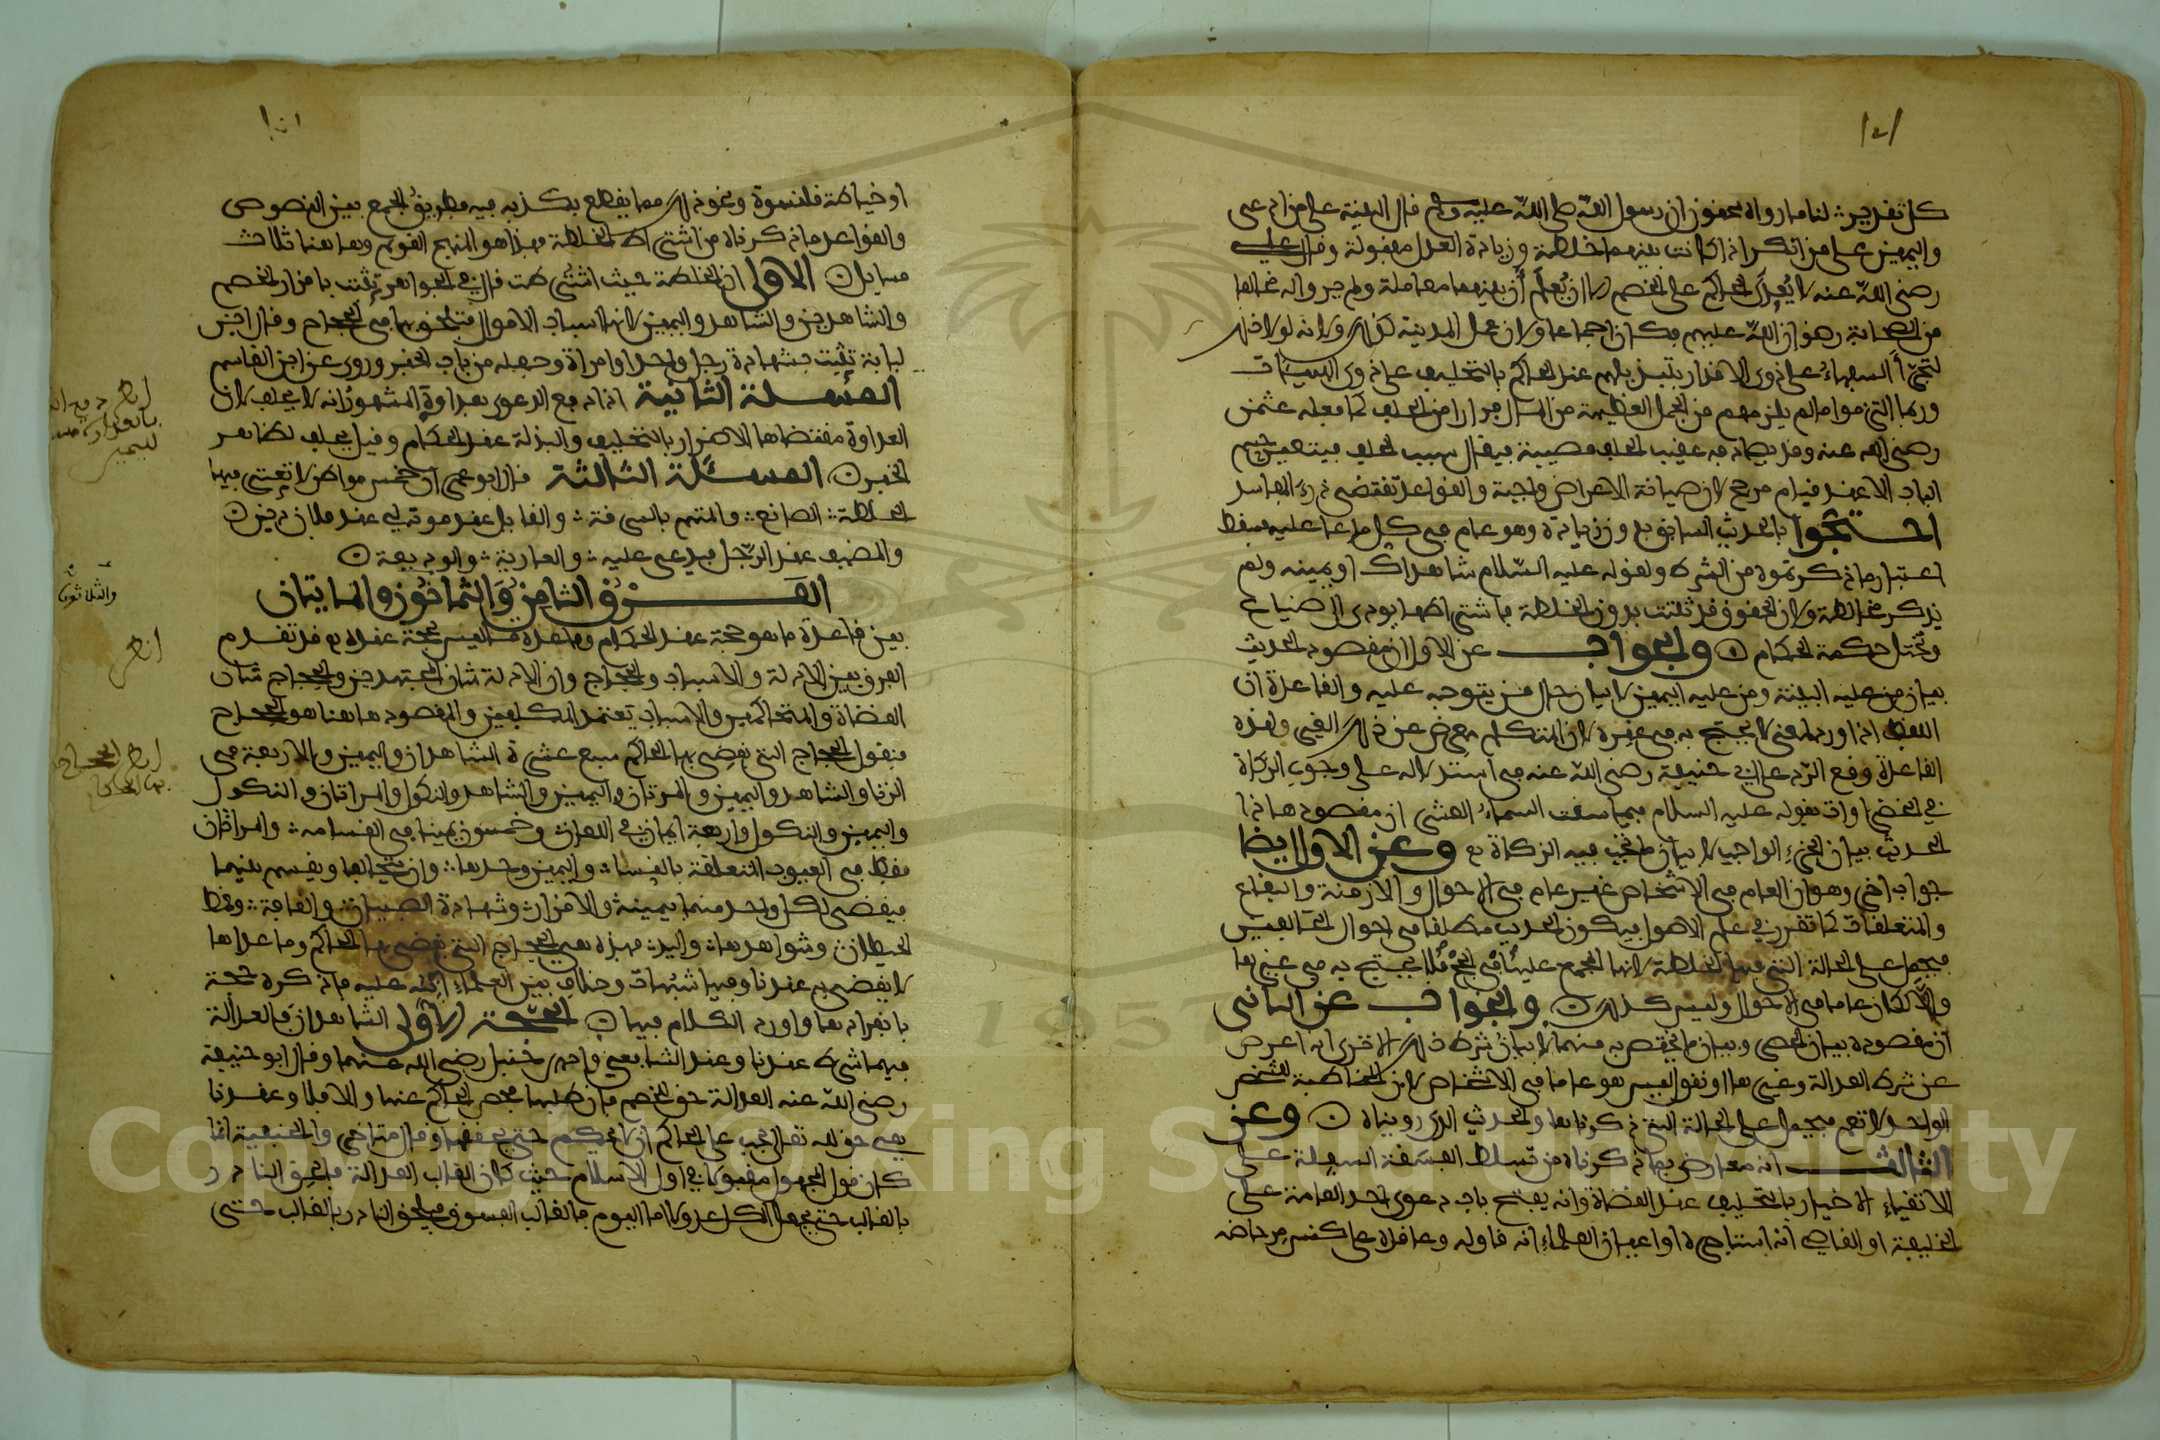 كل تفدير لنا ما رواه سحنون ان رسول الله صلى الله عليه وسلم قال البينة على من ادعى
واليمين على من انكر اذا كانت بينهما خلطة وزيادة العدل مقبولة وقال علي
رضي الله عنه لا يعدي الحاكم على الخصم الا ان يعلم أن بينهما معاملة ولم يرو له مخالفا
من الصحابة رضوان الله عليهم فكان اجماعا ولان عمل المدينة كذلك ولانه لولا ذلك
لتجرأ السفهاء على ذوي الاقدار بتبذيلهم عند الحاكم بالتحليف على ذوي الهيئات
وربما التزموا ما لم يلزمهم من الجمل العظيمة من المال فرارا من الحلف كما فعله عثمن
رضي الله عنه وقد يصادفه عقيب الحلف مصيبة فيقال بسبب الحلف فيتعين حسم
الباب الا عند قيام مرجح لان صيانة الاعراض واجبة والقواعد تقتضي درء المفاسد
احتجوا بالحديث السابق بدون زيادة وهو عام في كل مدعا عليه فسقط
اعتبار ما ذكرتموه من الشرط ولقوله عليه السلام شاهداك او يمينه ولم
يذكر مخالطة ولان الحقوق قد تثبت بدون الخلطة فاشتراطها يودي الى ضياع
وتختل حكمة الحكام والجواب عن الاول ان مقصود الحديث
بيان من عليه البينة ومن عليه اليمين لا بيان حال من يتوجه عليه والقاعدة ان
اللفظ اذا ورد لمعنى لا يحتج به في غيره لان المتكلم معرض عن ذلك الغير ولهذه
القاعدة وقع الرد على ابي حنيفة رضي الله عنه في استدلاله على وجوب الزكاة
في الخضراوات بقوله عليه السلام فيما سقت السماء العشر ان مقصود هاذا
الحديث بيان الجزء الواجب لا بيان ما تجب فيه الزكاة وعن الاول ايضا
جواب اخر وهو ان العام في الاشخاص غير عام في الاحوال والازمنة والبقاع
والمتعلقات كما تقرر في علم الاصول فيكون الحديث مطلقا في احوال الحالفين
فيحمل على الحالة التي فيها الخلطة لانها المجمع عليها فلا يحتج به في غيرها
والا لكان عاما في الاحوال وليس كذلك والجواب عن الثاني
ان مقصوده بيان الحصر وبيان ما يختص به منهما لا بيان شرط ذلك الا ترى انه اعرض
عن شرط العدالة وغيرها او نقول ليس هو عاما في الاشخاص لان المخاطبة لشخص
الواحد لا تعم فيحمل على الحالة التي ذكرناها والحديث الذي رويناه وعن
الثالث انه معارض بما ذكرناه من تسلط الفسقة السفلة على
الاتقياء الاخيار بالتحليف عند القضاة وانه يفتح باب دعوى احد العامة على
الخليفة او القاضي انه استاجره او اعيان العلماء انه قاوله وعاقده على كنس مرحاضه
او خياطة قلنسوة ونحو ذلك مما يقطع بكذبه فيه فطريق الجمع بين النصوص
والقواعد ما ذكرناه من اشتراط الخلطة فهذا هو المنهج القويم وهاهنا ثلاث
مسايل الاولى ان الخلطة حيث اشترطت قال في الجواهر تثبت باقرار الخصم
والشاهدين والشاهد واليمين لانها اسباب الاموال فتلحق بها في الحجاج وقال ابن
لبابة تثبت بشهادة رجل واحد او امراة وجعله من باب الخبر وروي عن ابن القاسم
المسلة الثانية اذا دفع الدعوى بعداوة المشهور انه لا يحلف لان
العداوة مقتضاها الاضرار بالتحليف والبذلة عند الحكام وقيل يحلف لظاهر
الخبر المسلة الثالثة قال ابو عمران خمس مواطن لا تعتبر فيها
الخلطة الصانع والمتهم بالسرقة والقايل عند موته لي عند فلان دين
والمضيف عند الرجل فيدعي عليه والعارية والوديعة
الفرق الثامن والثلاثون والمايتان
بين قاعدة ما هو حجة عند الحكام وقاعدة ما ليس بحجة عندهم قد تقدم
الفرق بين الادلة والاسباب والحجاج وان الادلة شان المجتهدين والحجاج شان
القضاة والمتحاكمين والاسباب تعتمد المكلفين والمقصود هاهنا هو الحجاج
فنقول الحجاج التي يقضي بها الحاكم سبع عشرة الشاهدان واليمين والاربعة في
الزنا والشاهد واليمين والمرتان واليمين والشاهد والنكول والمراتان والنكول
واليمين والنكول واربعة ايمان في اللعان وخمسون يمينا في القسامة والمراتان
فقط في العيوب المتعلقة بالنساء واليمين وحدها وان يتحالفا ويقسم بينهما
فيقضى لكل واحد منهما بيمينه والاقرار وشهادة الصبيان والقافة وقمط
الحيطان وشواهدها واليد فهذه هي الحجاج التي يقضي بها الحاكم وما عداها
لا يقضى به عندنا وفيها شبهات وخلاف بين العلماء انبه عليه فاذكره حجة
بانفرادها واورد الكلام فيها الحجة الاولى الشاهدان والعدالة
فيهما شرط عندنا وعند الشافعي واحمد بن حنبل رضي الله عنهما وقال ابو حنيفة
رضي الله عنه العدالة حق للخصم فان طلبها فحص الحاكم عنها والا فلا وعندنا
هي حق لله تعالى يجب على الحاكم ان لا يحكم حتى يحققها وقال متاخرو الحنفية انما
كان قول المجهول مقبولا في اول الاسلام حيث كان الغالب العدالة فالحق النادر
بالغالب حتى يجعل الكل عدولا اما اليوم فالغالب الفسوق فيلحق النادر بالغالب حتى
والثلاثون
انظر
انظر الحجاج